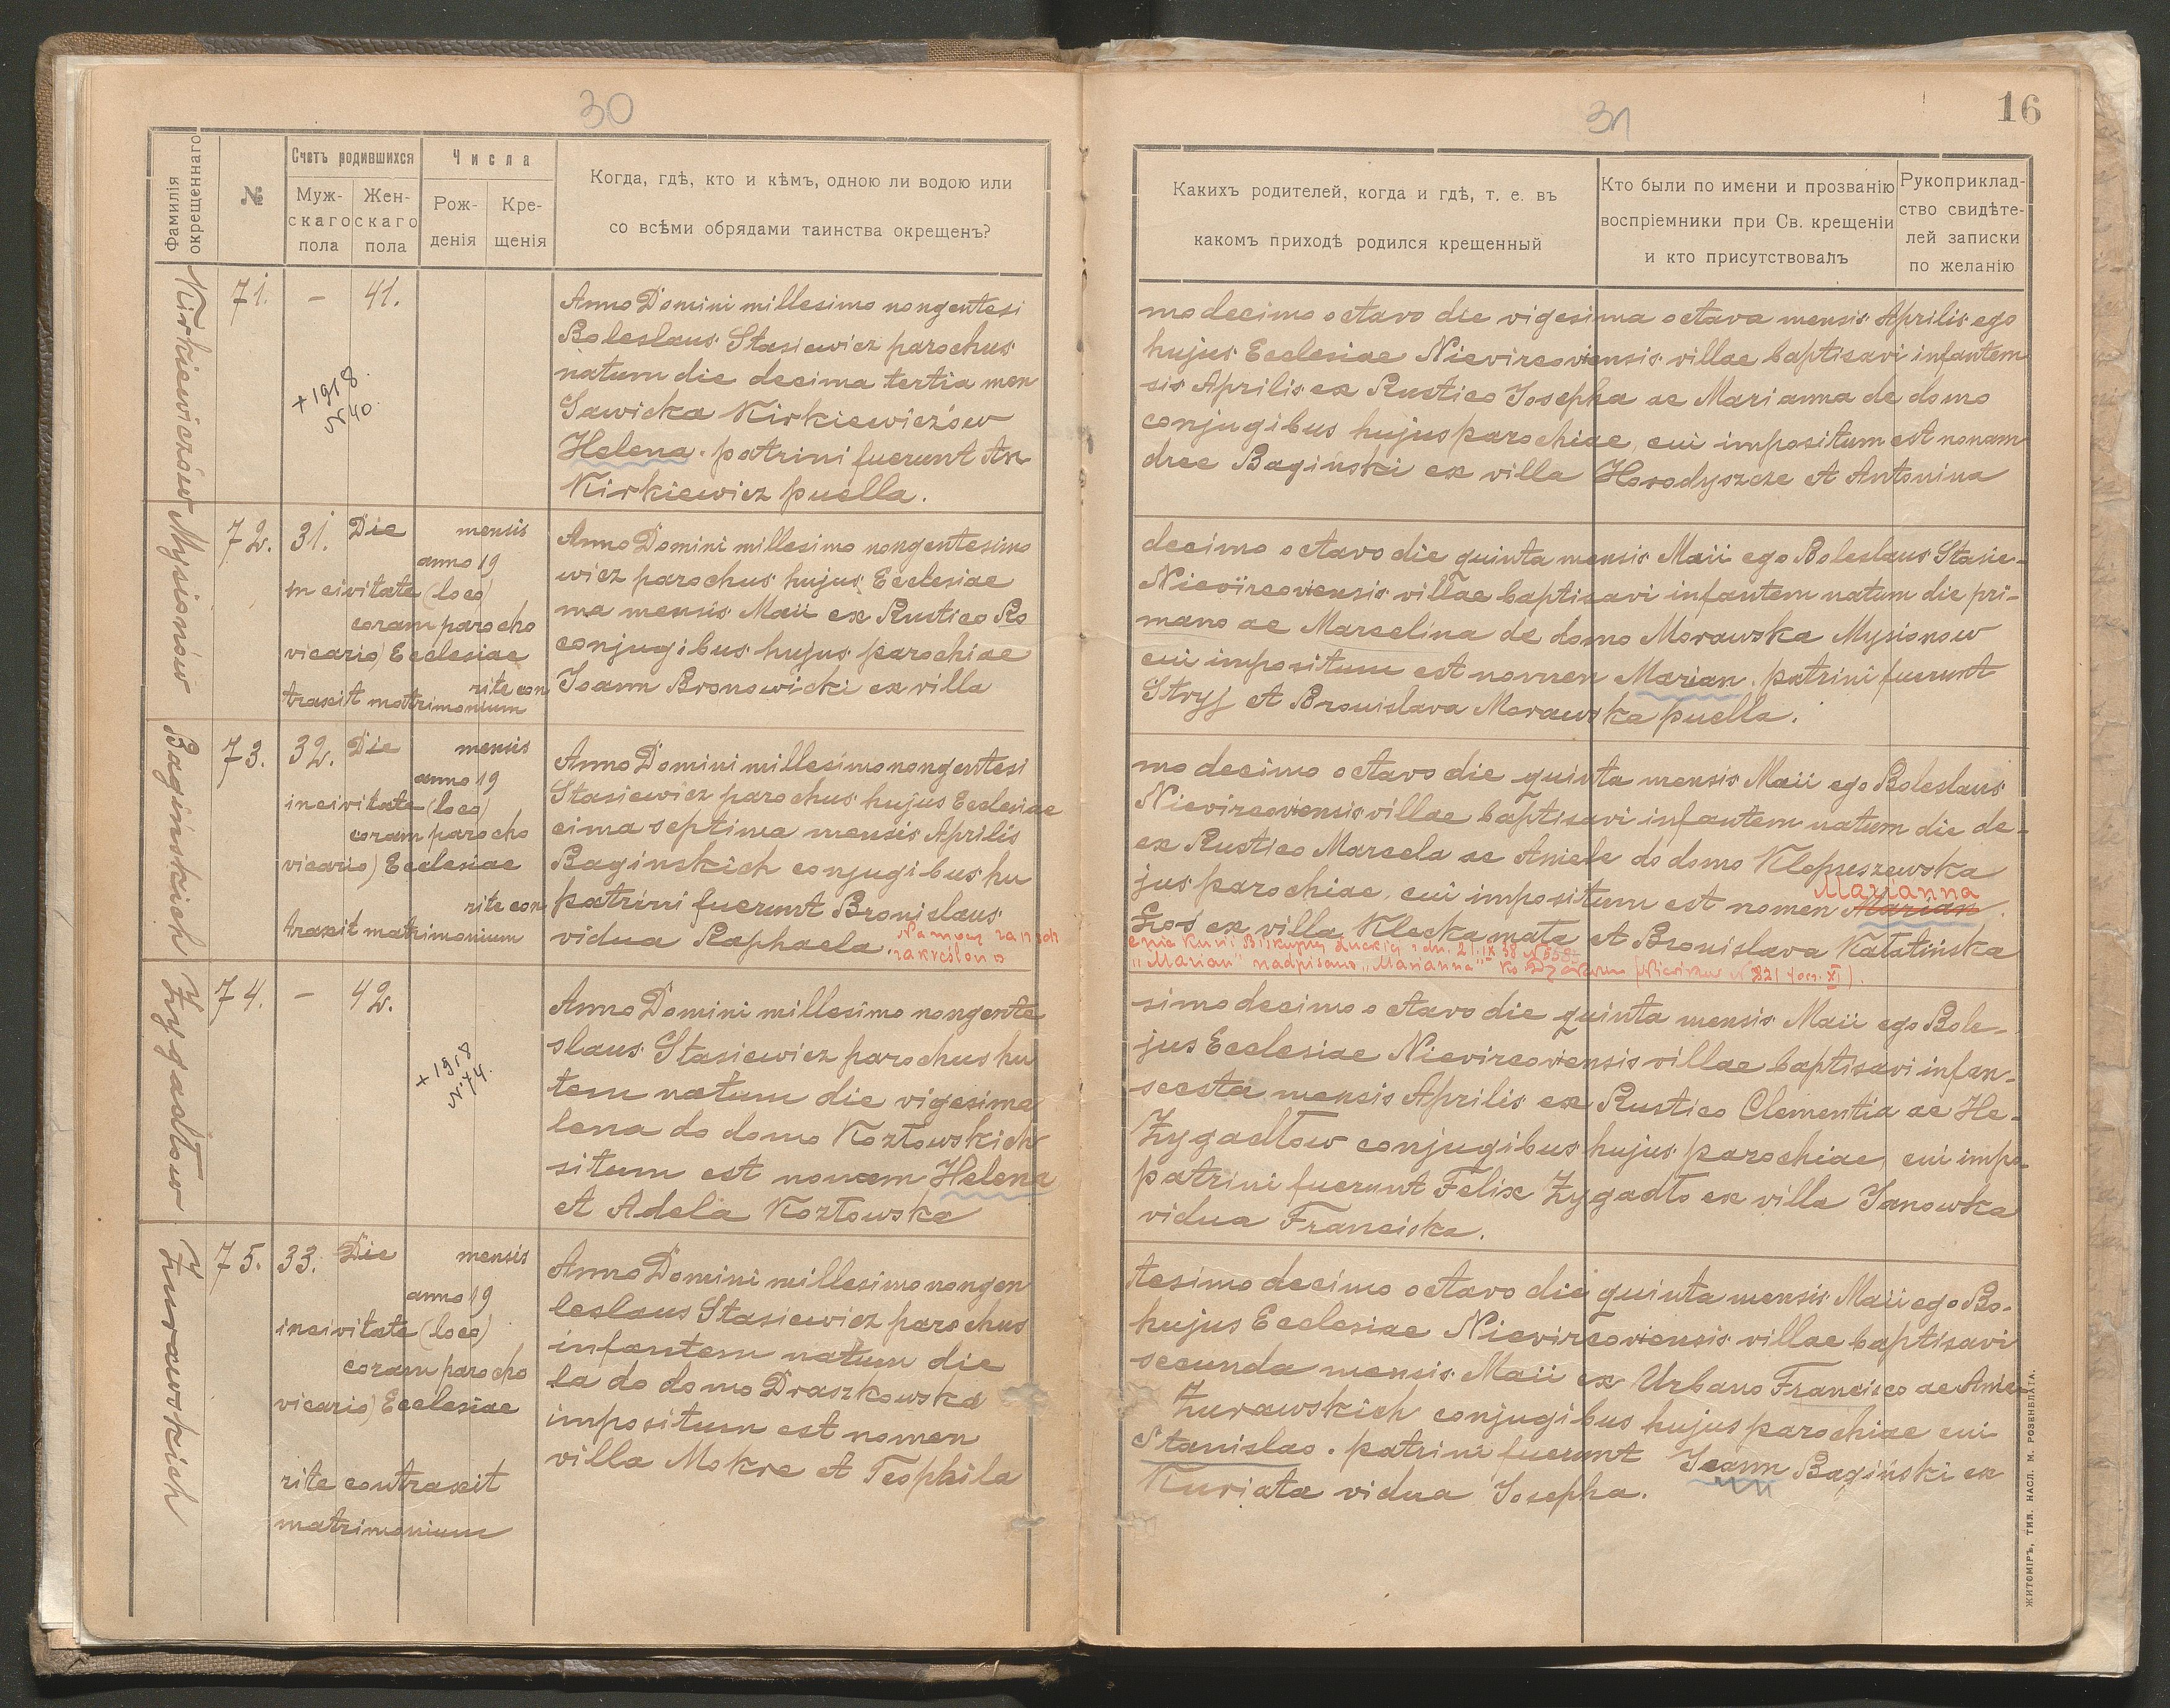 30
Фамилія окрещеннаго
№
Счетъ родившихся
Муж-
скаго
пола
Жен-
скаго
пола
Числа
Рож-
денія
Кре-
щенія
Когда, гдѣ, кто и кѣмъ, одною ли водою или
со всѣми обрядами таинства окрещенъ?
Kirkiewiczów
71. - 41.
+1918.
N 40.
Anno Domini millesimo nongentesi
Boleslaus Stasiewicz parochus
natum die decima tertia men
Sawicka Kirkiewiczów
Helena. patrini fuerunt An
Kirkiewicz puella.
Mysionów
72. 31. Die mensis
anno 19
in civitate (loco)
coram parocho
vicario) Ecclesiae
rite con
traxit matrimonium
Anno Domini millesimo nongentesimo
wicz parochus hujus Ecclesiae
ma mensis Maii ex Rustico Ro
conjugibus hujus parochiae
Joann Bronowicki ex villa
Bagińskich
73. 32. Die mensis
anno 19
in civitate (loco)
coram parocho
vicario) Ecclesiae
rite con
traxit matrimonium
Anno Domini millesimo nongentesi
Stasiewicz parochus hujus Ecclesiae
cima septima mensis Aprilis
Baginskich conjugibus hu
patrini fuerunt Bronislaus
vidua Raphaela.
Na mocy
zakreślono
Zygadłow
74. - 42.
+1918
N 74.
Anno Domini millesimo nongente
slaus Stasiewicz parochus hu
tem natum die vigesima
lena do domo Kozłowskich
situm est nomem Helena
et Adela Kozłowska
Żurawskich
75. 33. Die mensis
anno 19
in civitate (loco)
coram parocho
vicario) Ecclesiae
rite contraxit
matrimonium
Anno Domini millesimo nongen
leslaus Stasiewicz parochus
infantem natum die
la do domo Draszkowska
impositum est nomen
villa Mokre et Teophila
31
16
Какихъ родителей, когда и гдѣ, т. е. въ
какомъ приходѣ родился крещенный
Кто были по имени и прозванію
воспріемники при Св. крещеніи
и кто присутствовалъ
Рукоприклад-
ство свидѣте-
лей записки
по желанію
mo decimo octavo die vigesima octava mensis Aprilis ego
hujus Ecclesiae Nievircoviensis villae baptisavi infantem
sis Aprilis ex Rustico Josepha ac Marianna de domo
conjugibus hujus parochiae, cui impositum est nonam
dree Bagiński ex villa Horodyszcze et Antonina
decimo octavo die quinta mensis Maii ego Boleslaus Stasie-
Nievircoviensis villae baptisavi infantem natum die pri-
mano ac Marcelina de domo Morawska Mysionow
cui impositum est nomen Marian. patrini fuerunt
Stryj et Bronislava Morawska puella.
mo decimo octavo die quinta mensis Maii ego Boleslaus
Nievircoviensis villae baptisavi infantem natum die de-
ex Rustico Marcela ac Aniele do domo Klepuszewska
Marianna
jus parochiae, cui impositum est nomen Marian.
Łoś ex villa Kleckamata et Bronislava Kałatińska
Kurii Biskupiej Łuckiej z dn. 21.IX 38 N
"Marian" nadpisano "Marianna"
simo decimo octavo die quinta mensis Maii ego Bole-
jus Ecclesiae Nievircoviensis villae baptisavi infan-
secsta mensis Aprilis ex Rustico Clementia ac He-
Zygadłow conjugibus hujus parochiae, cui impo-
patrini fuerunt Felix Zygadło ex villa Janowka
vidua Franciska.
tesimo decimo octavo die quinta mensis Maii ego Bo-
hujus Ecclesiae Nievircoviensis villae baptisavi
secunda mensis Maii ex Urbano Francisco ac Anie-
Żurawskich conjugibus hujus parochiae cui
Stanislao. patrini fuerunt Joann Bagiński ex
Kuriata vidua Josepha.
ЖИТОМІРЪ, ТИП. НАСЛ. М. РОЗЕНБЛАТА.